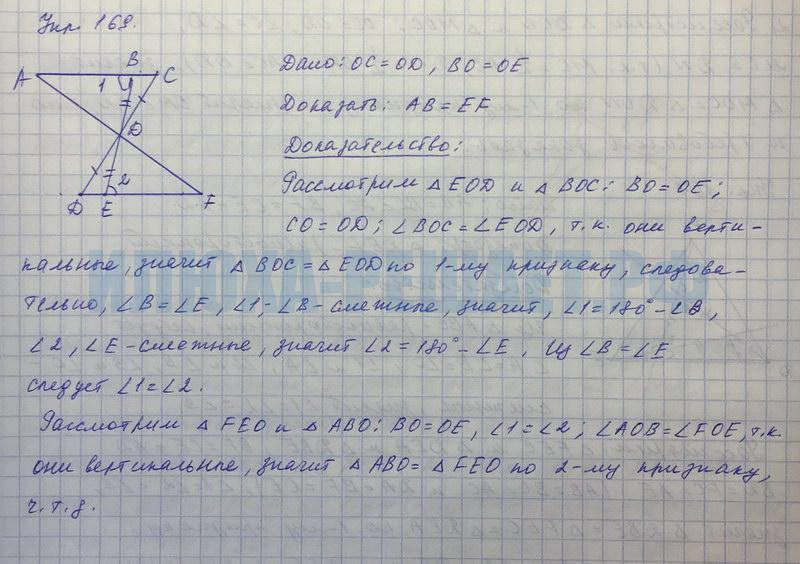 Упр. 169.
A B C
1
D
2
D E F
Дано: OC=OD, BO=OE
Доказать: AB=EF
Доказательство:
Рассмотрим △EOD и △BOC: BO=OE;
CO=OD; ∠BOC=∠EOD, т.к. они верти-
кальные, значит △BOC=△EOD по 1-му признаку, следова-
тельно, ∠B=∠E, ∠1, ∠B-смежные, значит, ∠1=180°-∠B,
∠2, ∠E-смежные, значит ∠2=180°-∠E, Из ∠B=∠E
следует ∠1=∠2.
Рассмотрим △FEO и △ABO: BO=OE, ∠1=∠2; ∠AOB=∠FOE, т.к
они вертикальные, значит △ABO=△FEO по 2-му признаку,
ч.т.д.